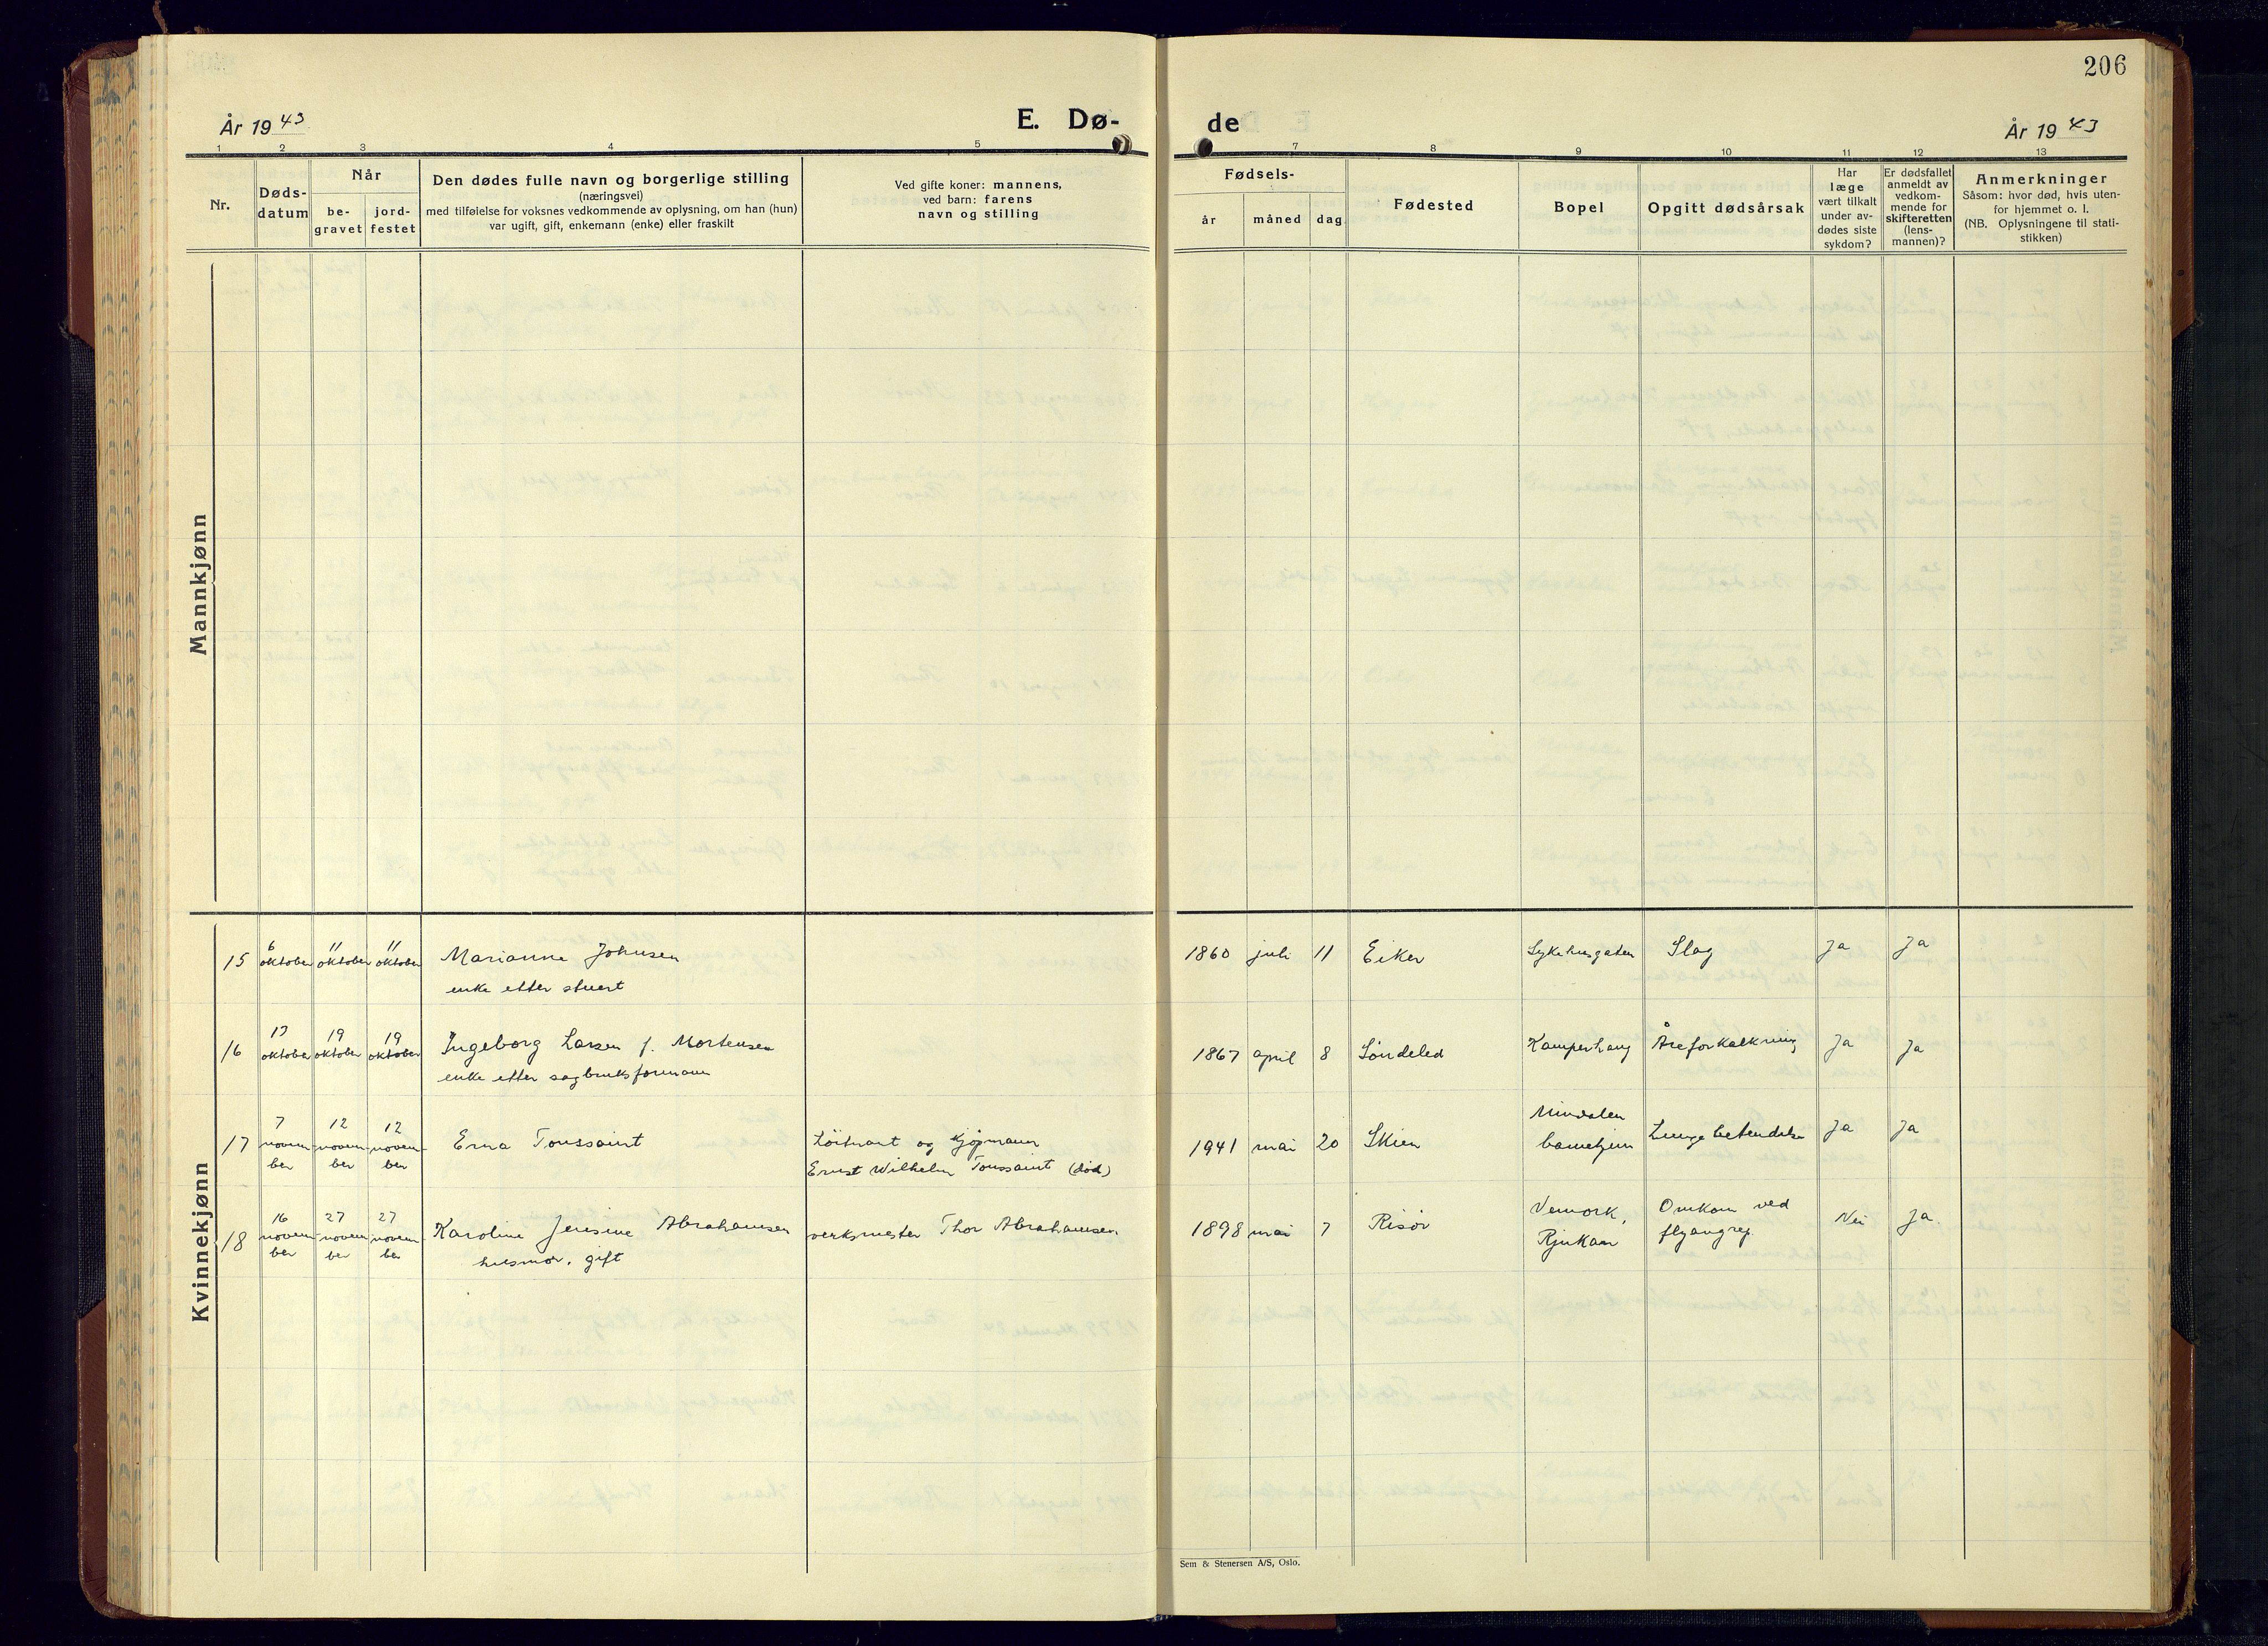 206
År 1943
E. Dø-
de
År 1943
1 2 3 4 5
7 8 9 10 11 12 13
Nr.
Døds-
datum
Når
be-
gravet
jord-
festet
Den dødes fulle navn og borgerlige stilling
(næringsvei)
med tilføielse for voksnes vedkommende av oplysning, om han (hun)
var ugift, gift, enkemann (enke) eller fraskilt
Ved gifte koner: mannens,
ved barn: farens
navn og stilling
Fødsels-
år
måned
dag
Fødested
Bopel
Opgitt dødsårsak
Har
læge
vært tilkalt
under av-
dødes siste
sykdom?
Er dødsfallet
anmeldt av
vedkom-
mende for
skifteretten
(lens-
mannen)?
Anmerkninger
Såsom: hvor død, hvis uten-
for hjemmet o. l.
(NB. Oplysningene til stati-
stikken)
Mannkjønn
Kvinnekjønn
15
6
oktober
11
oktober
11
oktober
Marianne Johnsen
enke etter stuert
1860 juli 11 Eiker Sykehusgaten Slag Ja Ja
16
17
oktober
19
oktober
19
oktober
Ingeborg Larsen f. Mortensen
enke etter sagbruksformann
1867 april 8 Söndeled Kamperhaug Åreforkalkning Ja Ja
17
7
novem
ber
12
novem-
ber
12
novem-
ber
Erna Toussaint
Löitnant og kjøpmann
Ernst Wilhelm Toussaint (död)
1941 mai 20 Skien
barnehjem
Lungebetendelse Ja Ja
18
16
novem
ber
27
novem
ber
27
novem
ber
Karoline Jensine Abrahamsen
husmor, gift
verksmester Thor Abrahamsen
1898 mai 7 Risör
Vemork,
Rjukan
Omkom ved
flyangrep.
Nei Ja.
Sem & Stenersen A/S, Oslo.